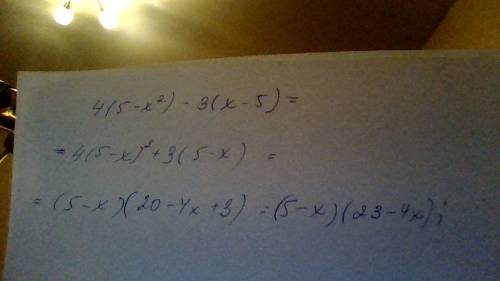 4(5-x²) - 3(x-5) =
= 4(5-x)² + 3(5-x) =
= (5-x)(20-4x+3) = (5-x)(23-4x);